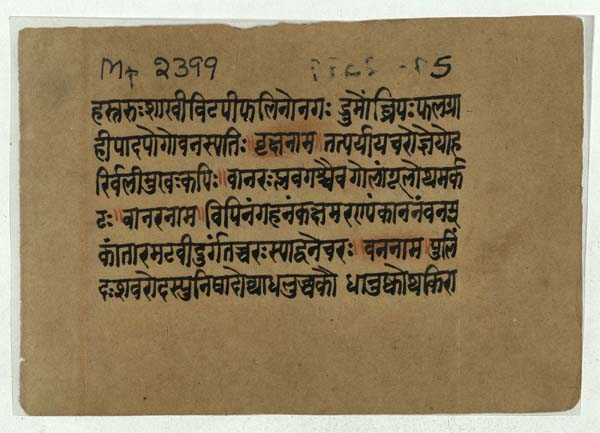 Mr 2399 5
हस्तरुःशाखीविटपीफलिनोनगः द्रुमोंघ्रिपःफलग्रा
हीपादपोगोवनस्पतिः वृक्षनाम तत्पर्यायचरोज्ञेयोह
रिर्वलीमुखःकपिः॥वानरःप्लवगश्चैवगोलांगूलोथमर्क
टः॥वानरनाम॥विपिनंगहनंकक्षमरण्यंकाननंवनम्
कांतारमटवीदुर्गंतच्चरःस्याद्वनेचरः वननाम पुलिं
दःशवरोदस्युनिषादोव्याधलुब्धकौ धानुष्कोथकिरा